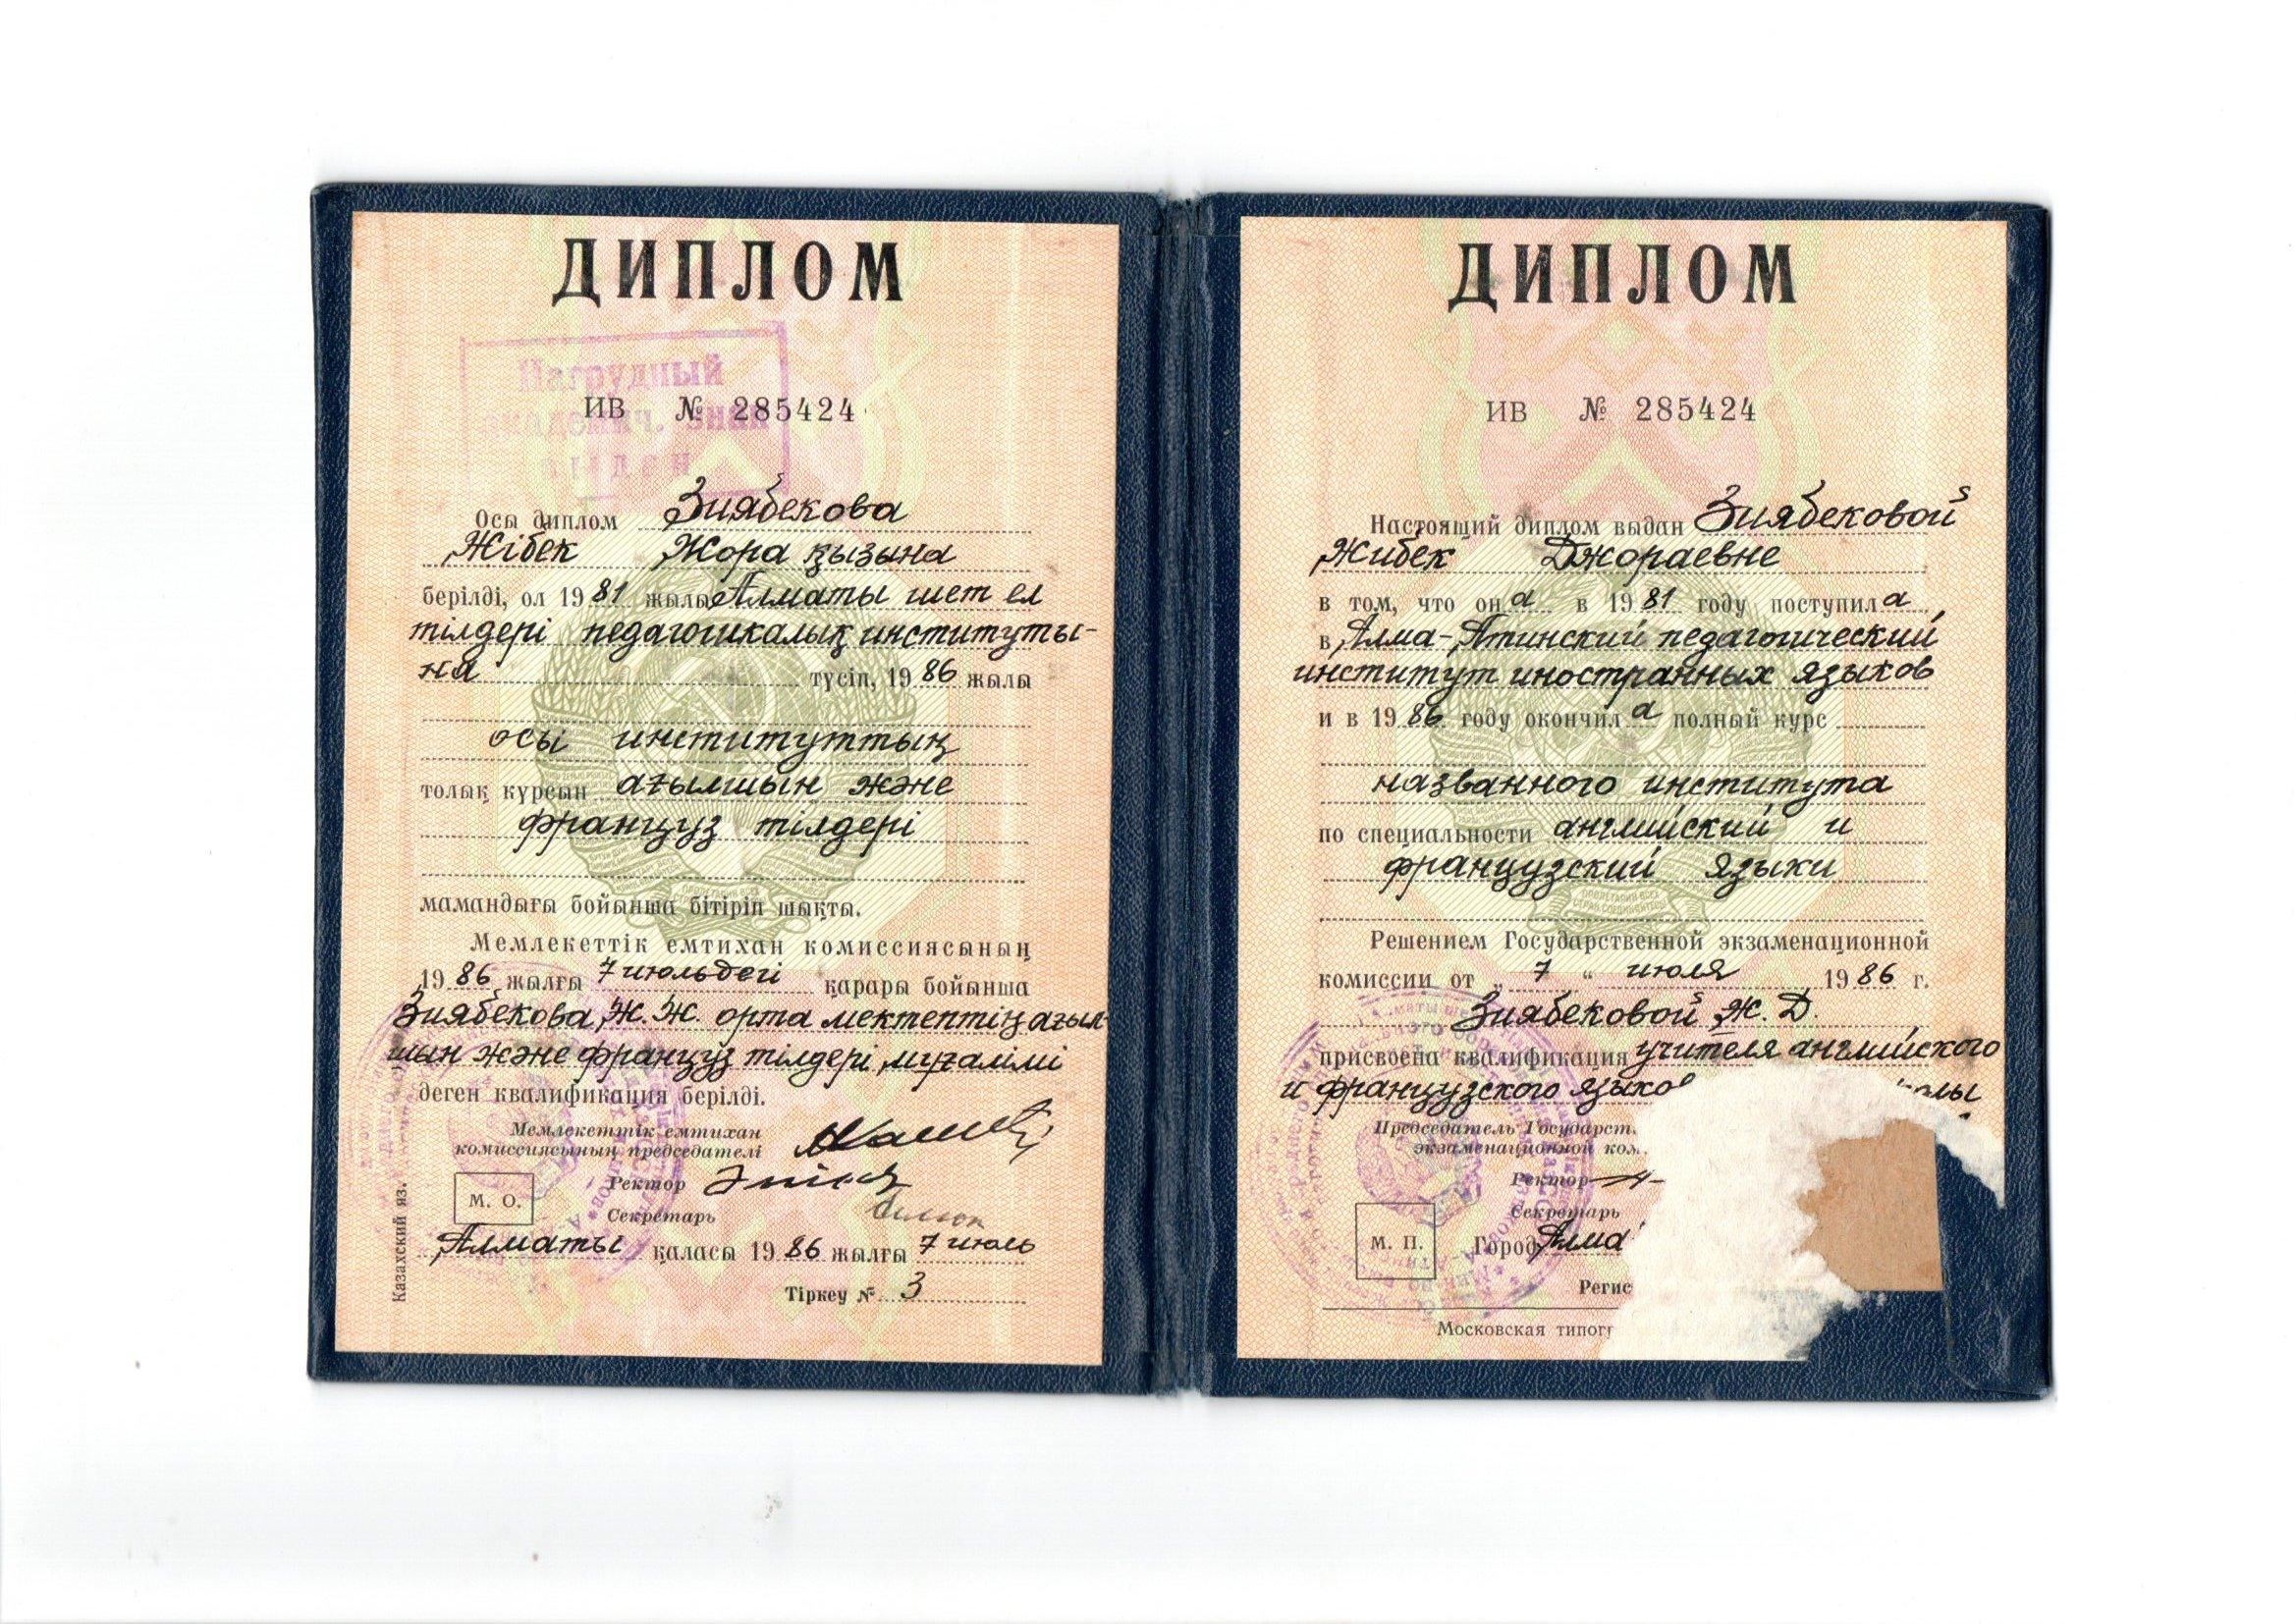 ДИПЛОМ
Нагрудный
выдан
ИВ № 285424
Осы диплом Зиябекова
Жібек Жора қызына
берілді, ол 1981 жылы Алматы шет ел
тілдері педагогикалық институты-
на түсіп, 1986 жылы
осы институттың
толық курсын ағылшын және
француз тілдері
мамандығы бойынша бітіріп шықты.
Мемлекеттік емтихан комиссиясының
1986 жылғы 7 июльдегі қарары бойынша
Зиябекова Ж. Ж. орта мектептің ағыл-
шын және француз тілдері мұғалімі
деген квалификация берілді.
Мемлекеттік емтихан
комиссиясының председателі
Ректор
М. О.
Секретарь
Алматы қаласы 1986 жылғы 7 июль
Тіркеу № 3
Казахский яз.
ДИПЛОМ
ИВ № 285424
Настоящий диплом выдан Зиябековой
Жибек Джораевне
в том, что она в 1981 году поступила
в Алма-Атинский педагогический
институт иностранных языков
и в 1986 году окончила полный курс
названного института
по специальности английский и
французский языки
Решением Государственной экзаменационной
комиссии от „ 7 " июля 1986 г.
Зиябековой Ж. Д.
присвоена квалификация учителя английского
и французского языко олы
Председатель Государст.
экзаменационной ком.
Ректор
Секретарь
М. П.
Город Алма
Регис
Московская типог